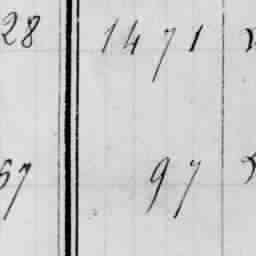 28 1471
57 97